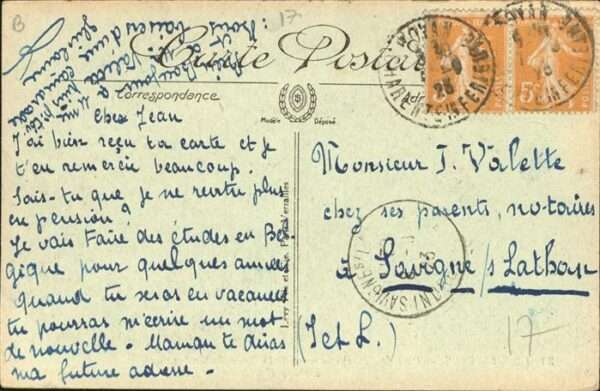 17
B
Carte Postale
Correspondance
Modèle Déposé
Cher Jean
J'ai bien reçu ta carte et je
t'en remercie beaucoup.
Sais-tu que je ne rentre plus
en pension?
Je vais faire des études en Bel
gique pour quelques années
quand tu seras en vacances
tu pourras m'écrire un mot
de nouvelle - Maman te diras
ma future adresse -
Bons baisers d'une
Monsieur J. Valette
chez ses parents, notaires
à Savigné s/ Lathan
(I et L.)
17
ROYAN
CHARENTE INFRE
5c